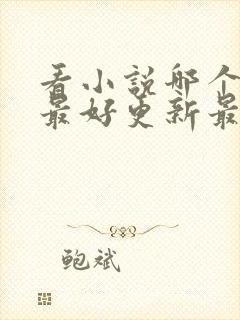 看小説哪个
最好更新最
鲍斌